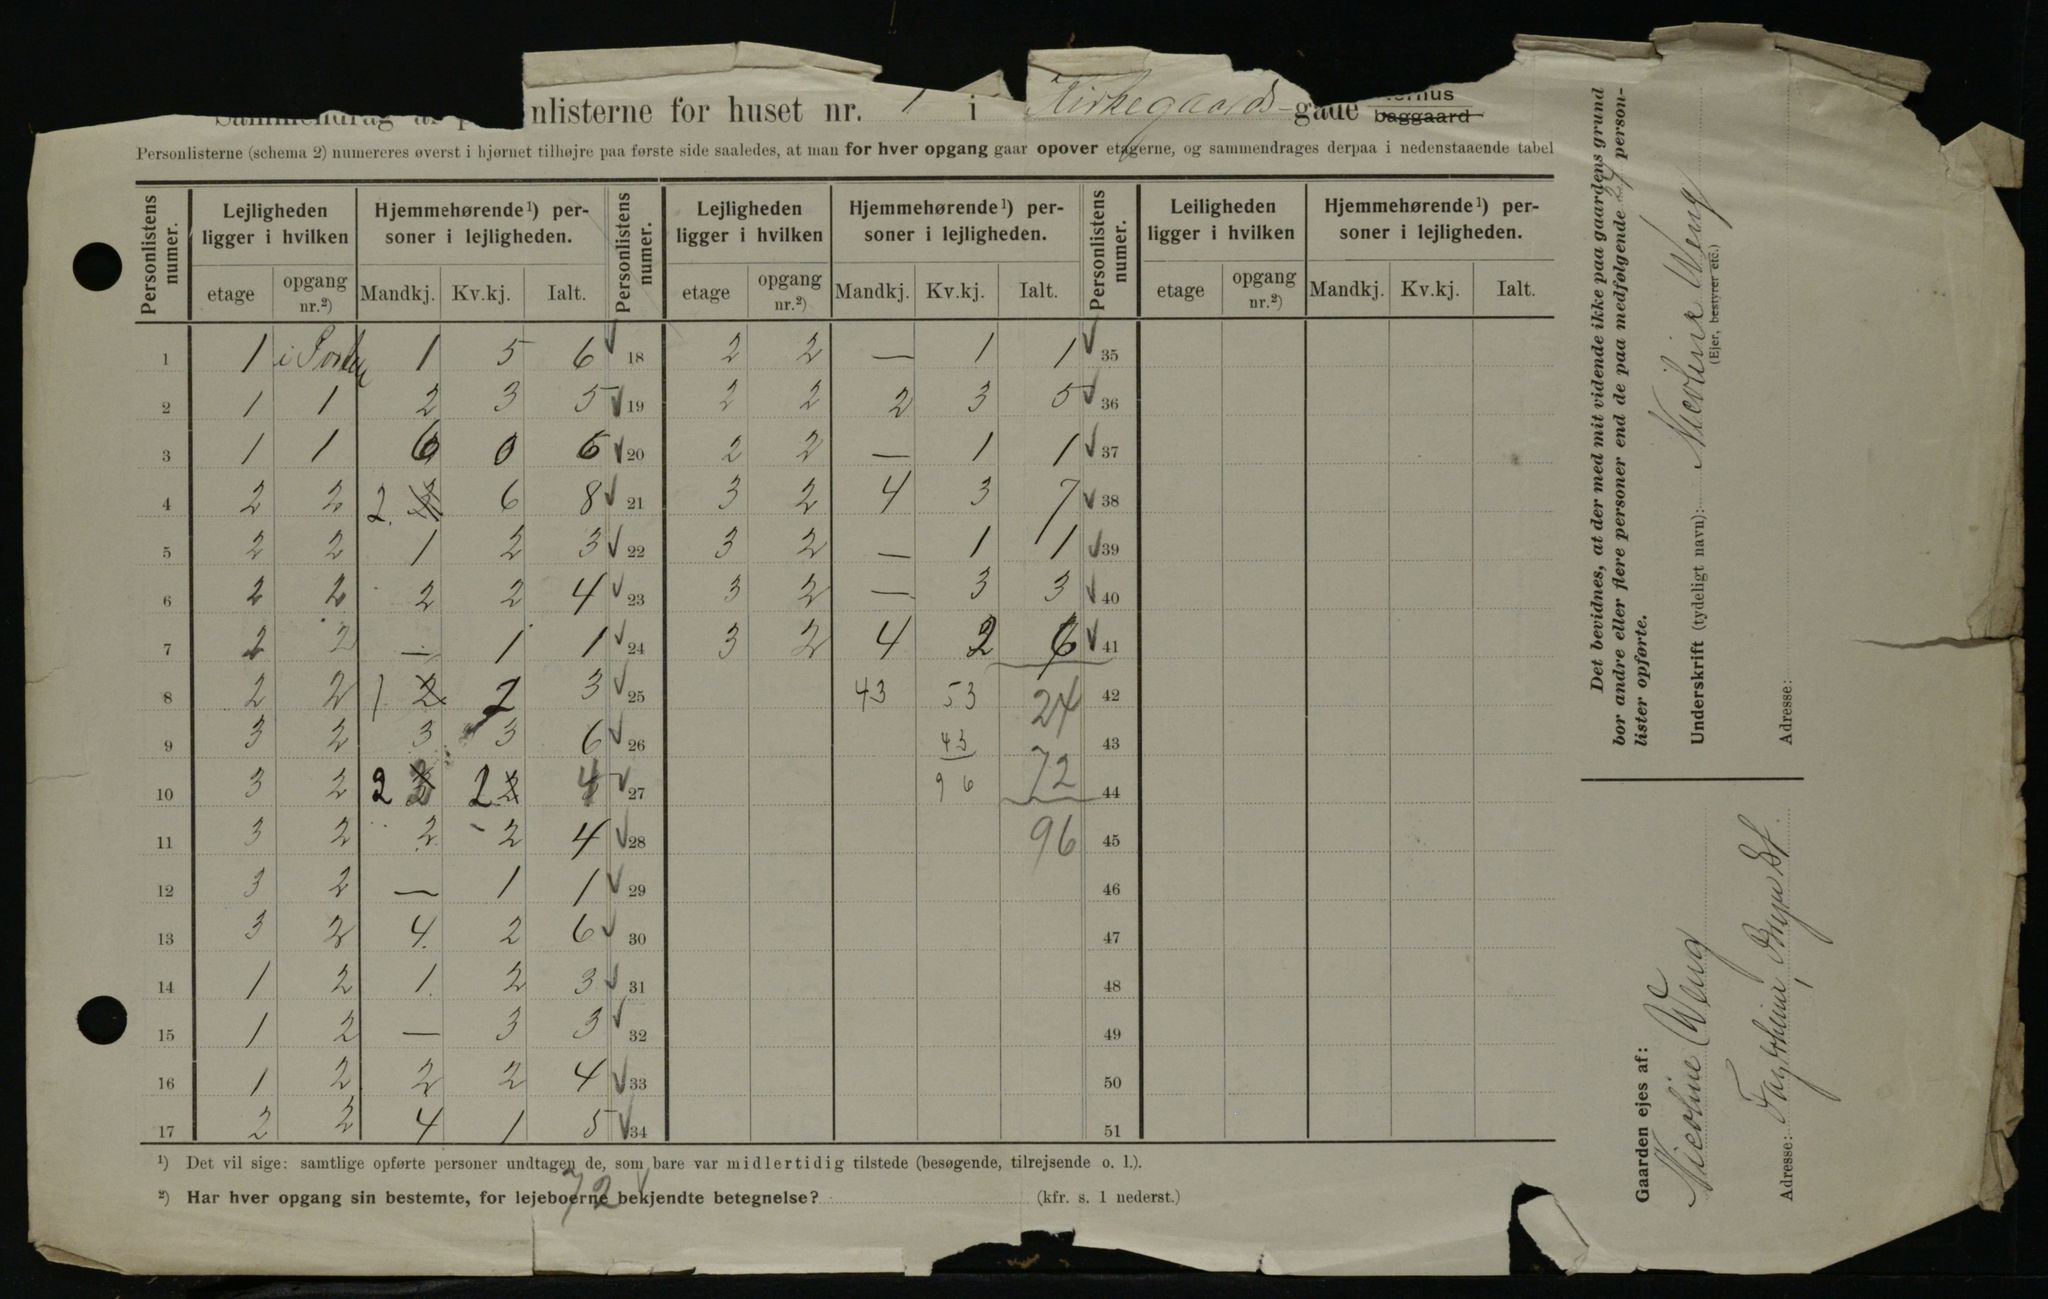 nlisterne for huset nr. 1 i Kirkegaards-gade
baggaard
Personlisterne (schema 2) numereres øverst i hjørnet tilhøjre paa første side saaledes, at man for hver opgang gaar opover etagerne, og sammendrages derpaa i nedenstaaende tabel
Personlistens numer. | Lejligheden ligger i hvilken | Hjemmehørende¹) personer i lejligheden. | Personlistens numer. | Lejligheden ligger i hvilken | Hjemmehørende¹) personer i lejligheden. | Personlistens numer. | Leiligheden ligger i hvilken | Hjemmehørende¹) personer i lejligheden.
etage | opgang nr.²) | Mandkj. | Kv.kj. | Ialt. | etage | opgang nr.²) | Mandkj. | Kv.kj. | Ialt. | etage | opgang nr.²) | Mandkj. | Kv.kj. | Ialt.
1 | 1 | i | 1 | 5 | 6 ✓ | 18 | 2 | 2 | — | 1 | 1 ✓ | 35
2 | 1 | 1 | 2 | 3 | 5 ✓ | 19 | 2 | 2 | 2 | 3 | 5 ✓ | 36
3 | 1 | 1 | 6 | 0 | 6 ✓ | 20 | 2 | 2 | — | 1 | 1 ✓ | 37
4 | 2 | 2 | 2 | 6 | 8 ✓ | 21 | 3 | 2 | 4 | 3 | 7 ✓ | 38
5 | 2 | 2 | 1 | 2 | 3 ✓ | 22 | 3 | 2 | — | 1 | 1 ✓ | 39
6 | 2 | 2 | 2 | 2 | 4 ✓ | 23 | 3 | 2 | — | 3 | 3 ✓ | 40
7 | 2 | 2 | — | 1 | 1 ✓ | 24 | 3 | 2 | 4 | 2 | 6 ✓ | 41
8 | 2 | 2 | 1 2 | 2 | 3 ✓ | 25 | 43 | 53 | 24 | 42
9 | 3 | 2 | 3 | 3 | 6 ✓ | 26 | 43 | 43
10 | 3 | 2 | 2 | 2 2 | 4 ✓ | 27 | 96 | 72 | 44
11 | 3 | 2 | 2 | 2 | 4 ✓ | 28 | 96 | 45
12 | 3 | 2 | — | 1 | 1 ✓ | 29 | 46
13 | 3 | 2 | 4 | 2 | 6 ✓ | 30 | 47
14 | 1 | 2 | 1 | 2 | 3 ✓ | 31 | 48
15 | 1 | 2 | — | 3 | 3 ✓ | 32 | 49
16 | 1 | 2 | 2 | 2 | 4 ✓ | 33 | 50
17 | 2 | 2 | 4 | 1 | 5 ✓ | 34 | 51
¹) Det vil sige: samtlige opførte personer undtagen de, som bare var midlertidig tilstede (besøgende, tilrejsende o. l.).
²) Har hver opgang sin bestemte, for lejeboerne bekjendte betegnelse? (kfr. s. 1 nederst.)
72 ✓
Det bevidnes, at der med mit vidende ikke paa gaardens grund
bor andre eller flere personer end de paa medfølgende 24 person-
lister opførte.
Underskrift (tydeligt navn): Nicoline Weng
(Ejer, bestyrer etc.)
Adresse:
Gaarden ejes af:
Nicoline Weng
Adresse: